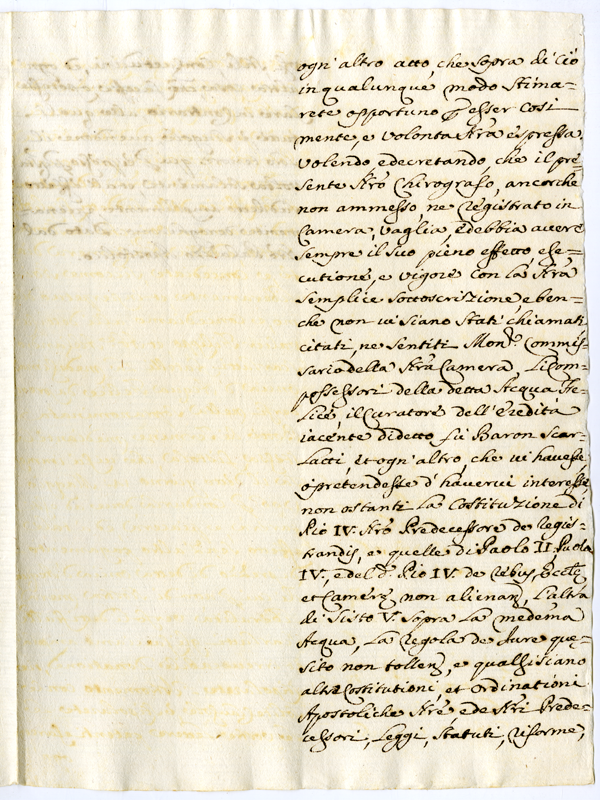 ogni altro atto, che sopra di Ciò
in qualunque modo Stima=
rete opportuno p esser Cosi
mente, e Volontà Nrã espressa,
Volendo, e decretando, che il pre=
sente Nrõ Chirografo, ancorche
non ammesso, ne Registrato in
Camera, Vaglia, e debbia avere
Sempre il suo pieno effetto, ese=
cutione, e vigore con la Nrã
Semplice sottoscrizzione, e ben=
che non vi siano stati chiamati
citati, ne sentiti Monsr. Commis=
sario della Nrã Camera, Li Com=
possessori della detta Acqua Fe=
lice, il Curatore dell'eredità
iacente di detto fù Baron Scar=
latti, et ogn'altro, che vi havesse
o pretendesse d'havervi interesse
non ostanti La Costituzione di
Pio IV. Nrõ Predecessore de Regis=
trandis, e quelle di Paolo II. Paolo
IV., e del d. Pio IV. de rebus Eccle
et Camere non alienan, L'altra
di Sisto V. sopra La medema
Acqua, La Regola de Jure que=
sito non tollen, e qualsisiano
altre Costitutioni, et Ordinationi
Apostoliche Nrẽ, e de Nrĩ Prede=
cessori, Leggi, Statuti, riforme,